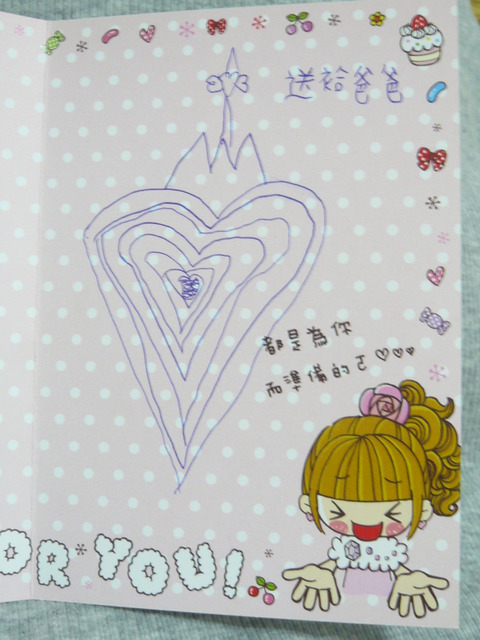 送給爸爸
都是為你
而準備的ㄛ♡♡♡♡
OR YOU!